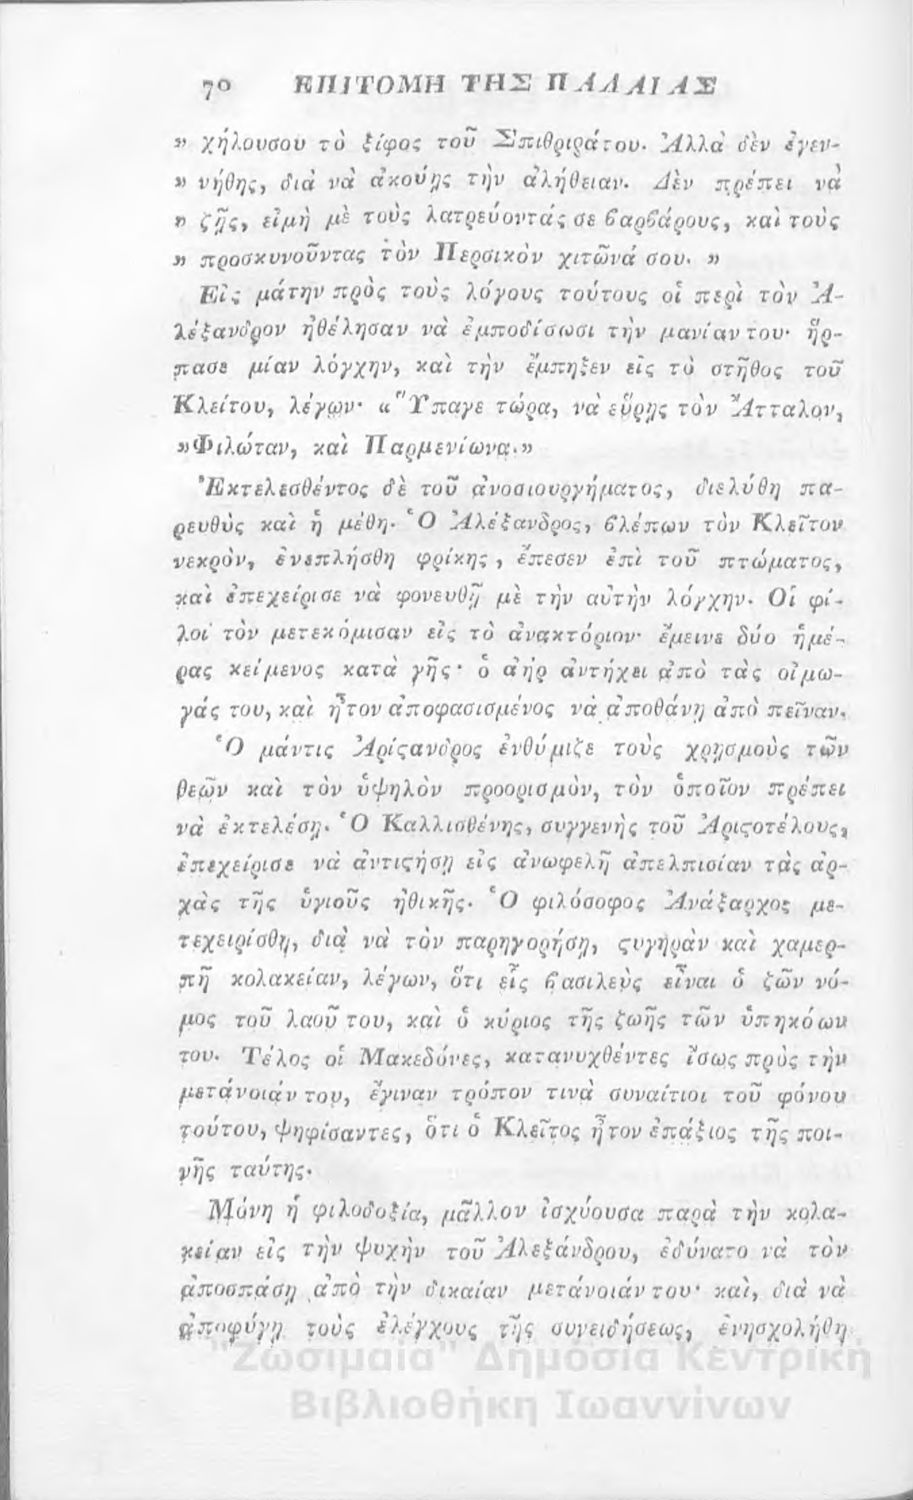 70 ΕΠΙΤΟΜΗ ΤΗΣ ΠΑΛΑΙΑΣ
» χήλουσου τὸ ξίφος τοῦ Σπιθριϛάτου. Ἀλλὰ δὲν ἐγεν-
» νήθης, διὰ νὰ ἀκούῃς τὴν ἀλήθειαν. Δὲν πρέπει νὰ
» ζῇς, εἰμὴ μὲ τοὺς λατρεύοντάς σε βαρβάρους, καὶ τοὺς
» προσκυνοῦντας τὸν Περσικὸν χιτῶνά σου. »
Εἰς μάτην πρὸς τοὺς λόγους τούτους οἱ περὶ τὸν Ἀ-
λέξανδρον ἠθέλησαν νὰ ἐμποδίσωσι τὴν μανίαν του· ἥρ-
πασε μίαν λόγχην, καὶ τὴν ἔμπηξεν εἰς τὸ στῆθος τοῦ
Κλείτου, λέγων· «Ὕπαγε τώρα, νὰ εὕρῃς τὸν Ἄτταλον,
»Φιλώταν, καὶ Παρμενίωνα.»
Ἐκτελεσθέντος δὲ τοῦ ἀνοσιουργήματος, διελύθη πα-
ρευθὺς καὶ ἡ μέθη. Ὁ Ἀλέξανδρος, βλέπων τὸν Κλεῖτον
νεκρὸν, ἐνεπλήσθη φρίκης, ἔπεσεν ἐπὶ τοῦ πτώματος,
καὶ ἐπεχείρισε νὰ φονευθῇ μὲ τὴν αὐτὴν λόγχην. Οἱ φί-
λοι τὸν μετεκόμισαν εἰς τὸ ἀνακτόριον· ἔμεινε δύο ἡμέ-
ρας κείμενος κατὰ γῆς· ὁ ἀὴρ ἀντήχει ἀπὸ τὰς οἰμω-
γάς του, καὶ ἦτον ἀποφασισμένος νὰ ἀποθάνῃ ἀπὸ πεῖναν.
Ὁ μάντις Ἀρίϛανδρος ἐνθύμιζε τοὺς χρησμοὺς τῶν
θεῶν καὶ τὸν ὑψηλὸν προορισμὸν, τὸν ὁποῖον πρέπει
νὰ ἐκτελέσῃ. Ὁ Καλλισθένης, συγγενὴς τοῦ Ἀριϛοτέλους,
ἐπεχείρισε νὰ ἀντιϛήσῃ εἰς ἀνωφελῆ ἀπελπισίαν τὰς ἀρ-
χὰς τῆς ὑγιοῦς ἠθικῆς. Ὁ φιλόσοφος Ἀνάξαρχος με-
τεχειρίσθη, διὰ νὰ τὸν παρηγορήσῃ, ϛυγηρὰν καὶ χαμερ-
πῆ κολακείαν, λέγων, ὅτι εἷς βασιλεὺς εἶναι ὁ ζῶν νό-
μος τοῦ λαοῦ του, καὶ ὁ κύριος τῆς ζωῆς τῶν ὑπηκόων
του. Τέλος οἱ Μακεδόνες, κατανυχθέντες ἴσως πρὸς τὴν
μετάνοιάν του, ἔγιναν τρόπον τινὰ συναίτιοι τοῦ φόνου
τούτου, ψηφίσαντες, ὅτι ὁ Κλεῖτος ἦτον ἐπάξιος τῆς ποι-
νῆς ταύτης.
Μόνη ἡ φιλοδοξία, μᾶλλον ἰσχύουσα παρὰ τὴν κολα-
κείαν εἰς τὴν ψυχὴν τοῦ Ἀλεξάνδρου, ἐδύνατο νὰ τὸν
ἀποσπάσῃ ἀπὸ τὴν δικαίαν μετάνοιάν του· καὶ, διὰ νὰ
ἀποφύγῃ τοὺς ἐλέγχους τῆς συνειδήσεως, ἐνησχολήθη
"Ζωσιμαία" Δημόσια Κεντρική
Βιβλιοθήκη Ιωαννίνων